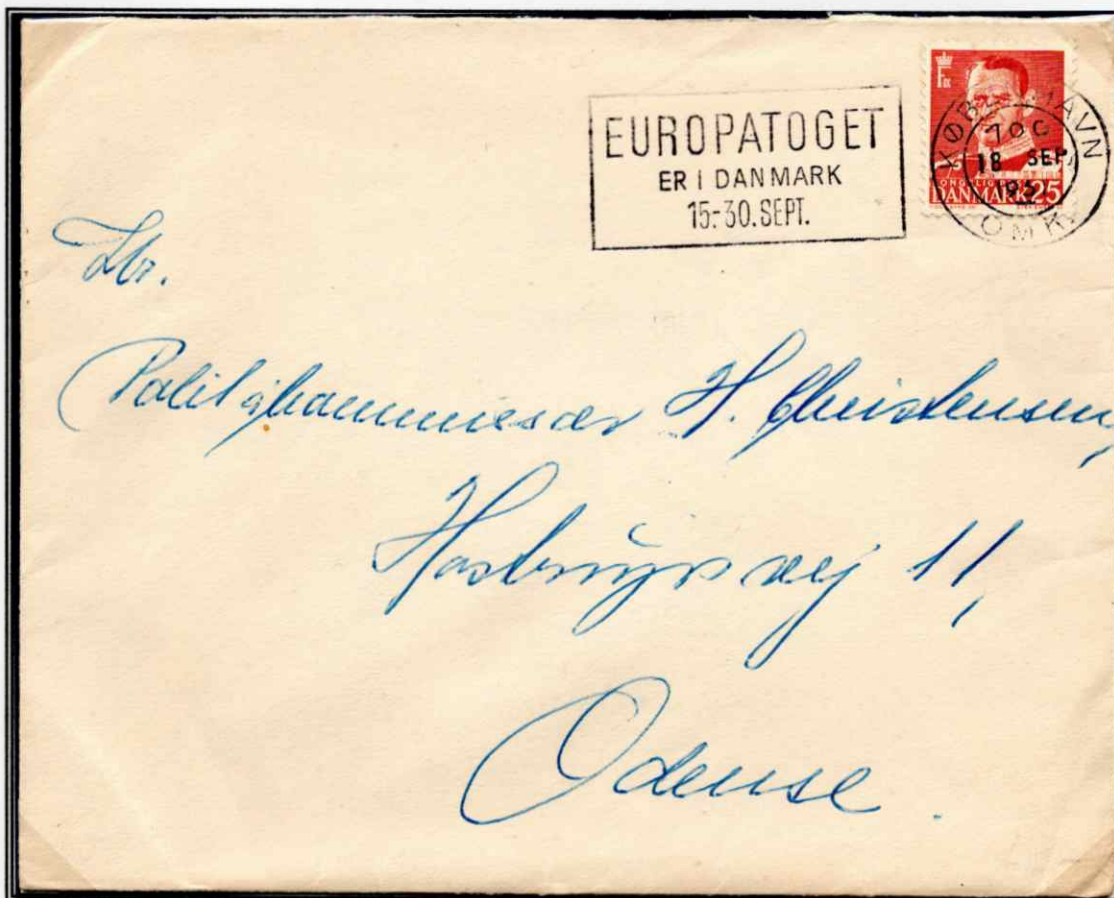 EUROPATOGET
ER I DANMARK
15.-30. SEPT.
KØBENHAVN
18 SEP.
OMK.
DANMARK 25
Hr.
Politikommissær H. Christensen,
vej 11,
Odense.